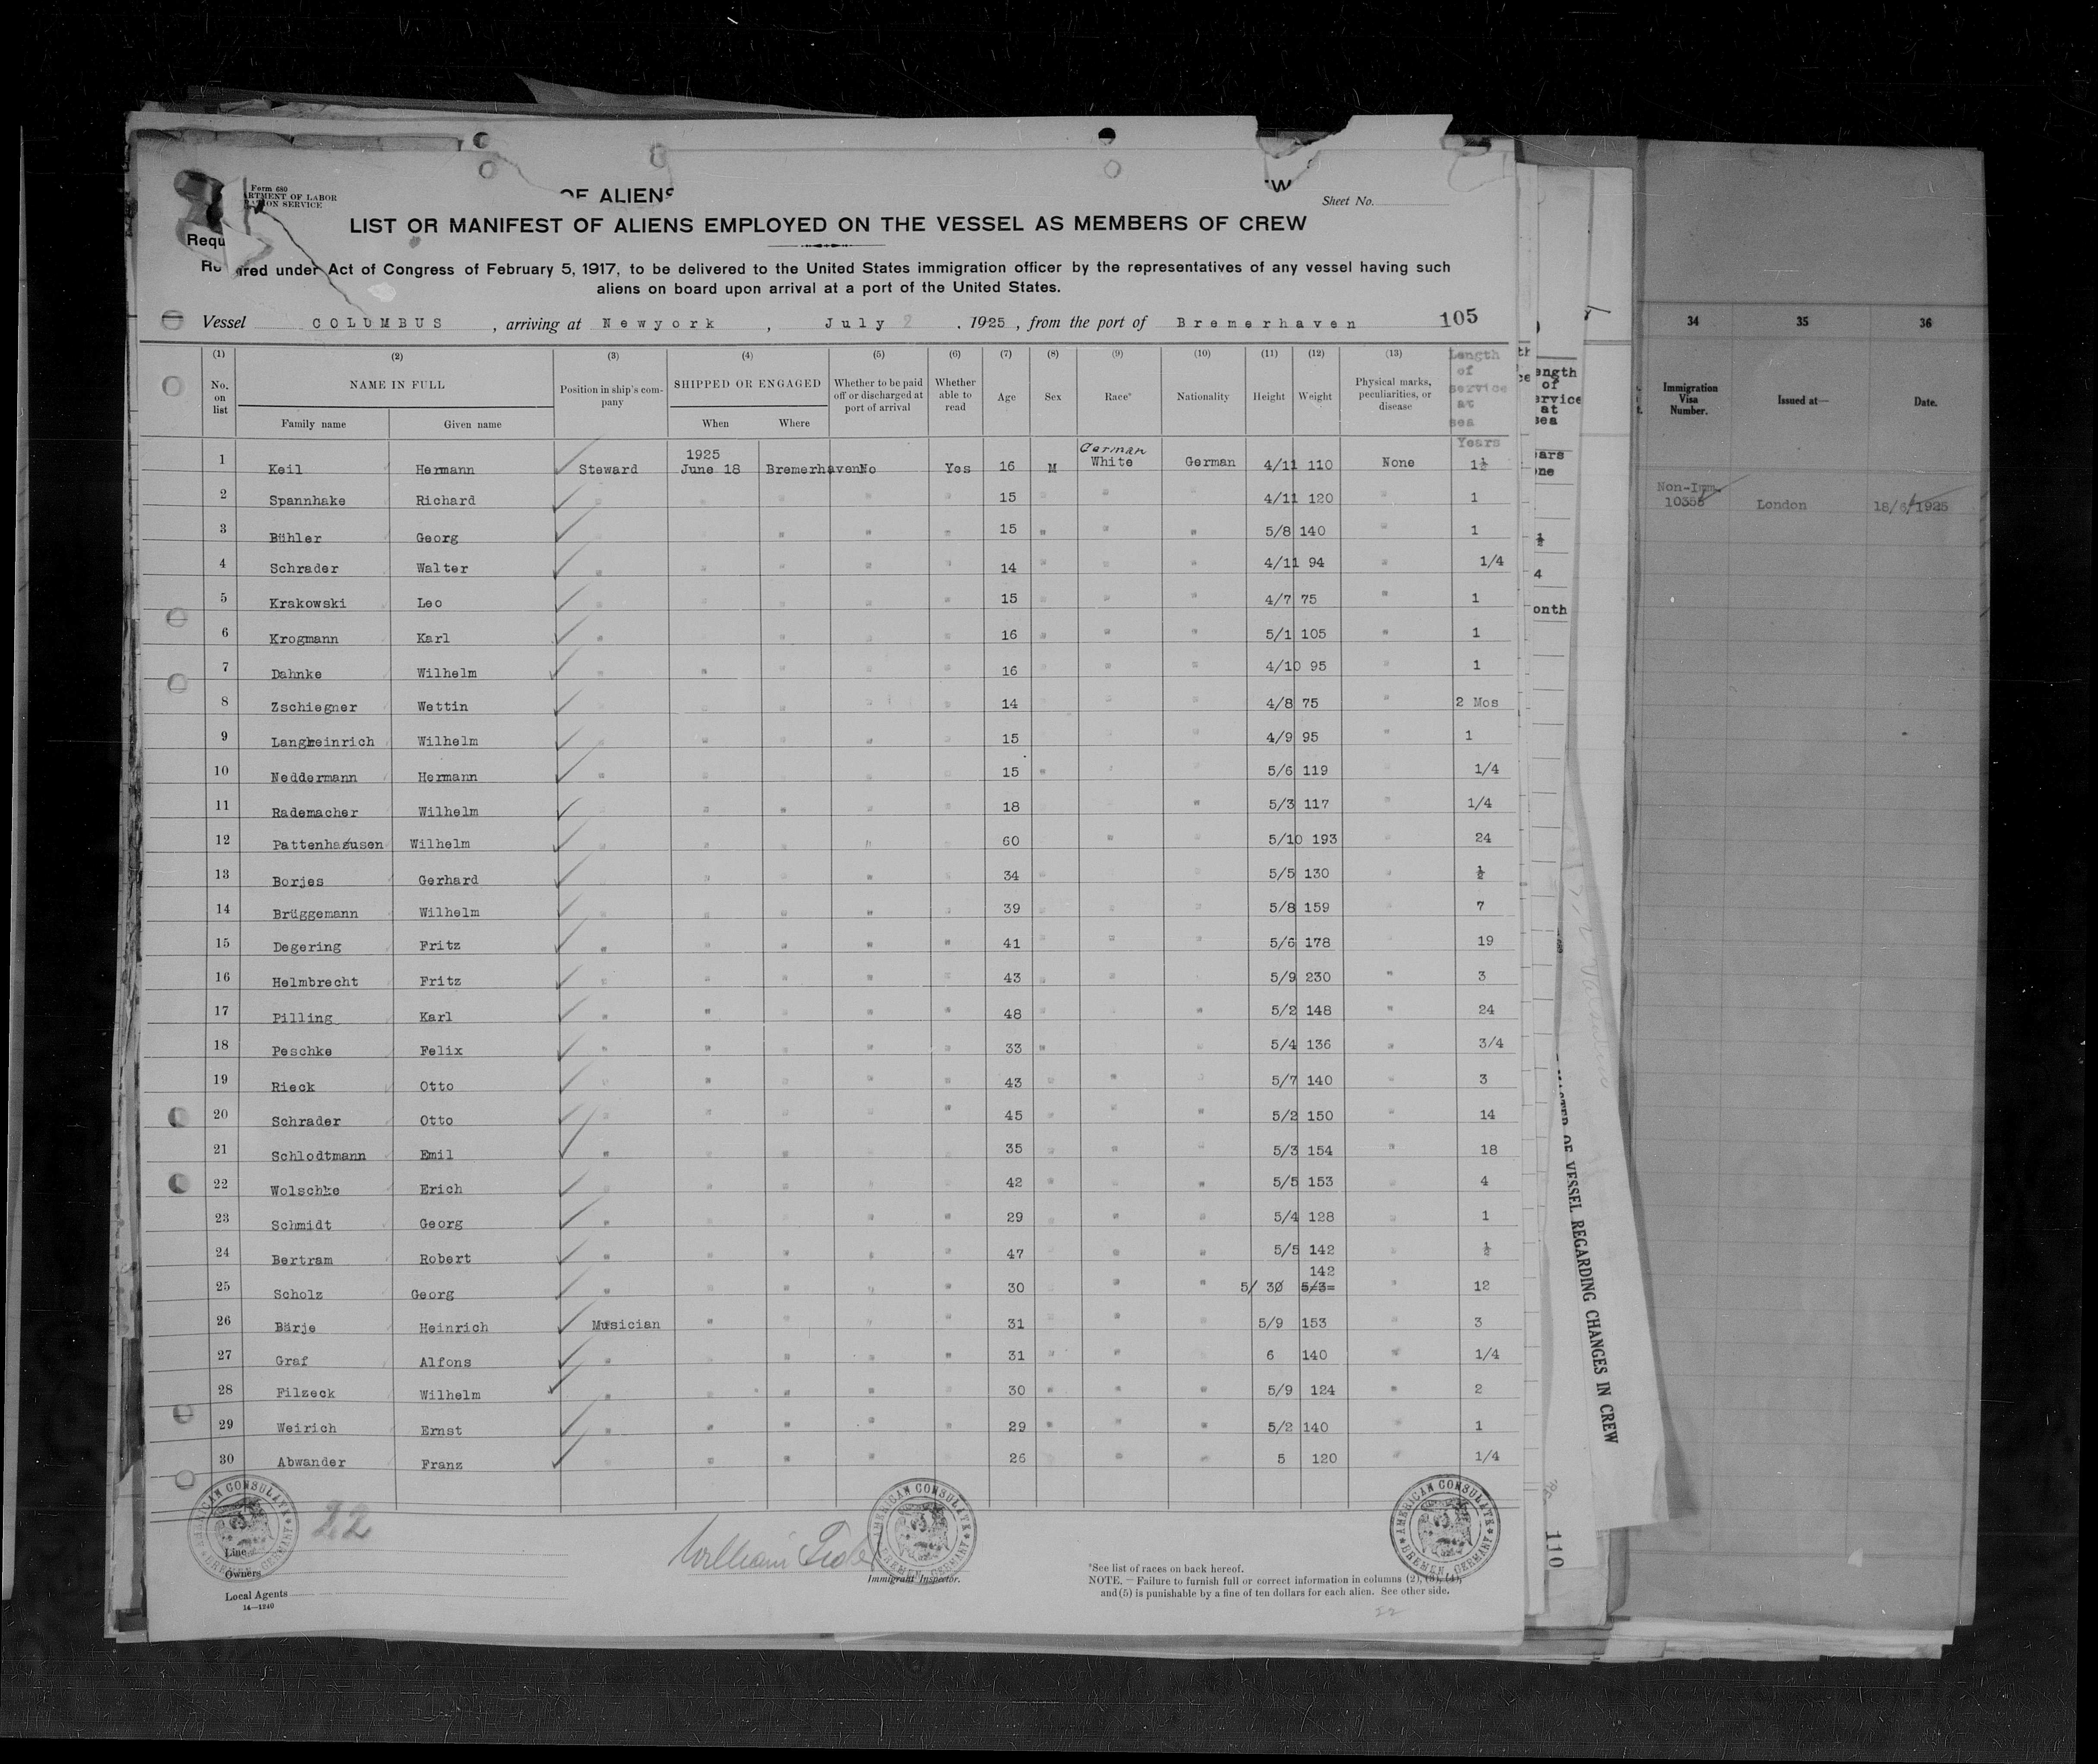 Form 680
ARTMENT OF LABOR
ATION SERVICE
OF ALIENS
Sheet No.
LIST OR MANIFEST OF ALIENS EMPLOYED ON THE VESSEL AS MEMBERS OF CREW
Requ
ired under Act of Congress of February 5, 1917, to be delivered to the United States immigration officer by the representatives of any vessel having such
aliens on board upon arrival at a port of the United States.
Vessel COLUMBUS , arriving at Newyork , July 2 , 1925 , from the port of Bremerhaven 105
(1) (2) (3) (4) (5) (6) (7) (8) (9) (10) (11) (12) (13) Length of service at sea
No. on list NAME IN FULL Position in ship's company SHIPPED OR ENGAGED Whether to be paid off or discharged at port of arrival Whether able to read Age Sex Race* Nationality Height Weight Physical marks, peculiarities, or disease
Family name Given name When Where
Years
1 Keil Hermann Steward 1925 June 18 Bremerhaven No Yes 16 M German White German 4/11 110 None 1½
2 Spannhake Richard " " " " " 15 " " 4/11 120 " 1
3 Bühler Georg " " " " 15 " " " 5/8 140 " 1
4 Schrader Walter " " " " " 14 " " " 4/11 94 " 1/4
5 Krakowski Leo " " " " " 15 " " " 4/7 75 " 1
6 Krogmann Karl " " " " 16 " " " 5/1 105 " 1
7 Dahnke Wilhelm " " " " " 16 " " " 4/10 95 " 1
8 Zschiegner Wettin " " " " " 14 " " " 4/8 75 " 2 Mos
9 Langheinrich Wilhelm " " " " " 15 " " " 4/9 95 " 1
10 Neddermann Hermann " " " " " 15 " " " 5/6 119 " 1/4
11 Rademacher Wilhelm " " " " " 18 " 5/3 117 " 1/4
12 Pattenhausen Wilhelm " " " " " 60 " 5/10 193 " 24
13 Borjes Gerhard " " " " 34 " " 5/5 130 " ½
14 Brüggemann Wilhelm " " " " " 39 " " " 5/8 159 " 7
15 Degering Fritz " " " " " 41 " " " 5/6 178 19
16 Helmbrecht Fritz " " " " " 43 " " 5/9 230 " 3
17 Pilling Karl " " " " " 48 " " 5/2 148 " 24
18 Peschke Felix " " " " " 33 " " 5/4 136 " 3/4
19 Rieck Otto " " " " " 43 " " " 5/7 140 " 3
20 Schrader Otto " " " " " 45 " " " 5/2 150 " 14
21 Schlodtmann Emil " " " " " 35 " " " 5/3 154 " 18
22 Wolschke Erich " " " " " 42 " " " 5/5 153 " 4
23 Schmidt Georg " " " " " 29 " " " 5/4 128 " 1
24 Bertram Robert " " " " " 47 " " 5/5 142 " ½
25 Scholz Georg " " " " " 30 " " 5/ 30 5/3= 142 " 12
26 Bärje Heinrich Musician " " " " 31 " " 5/9 153 " 3
27 Graf Alfons " " " " " 31 " " 6 140 " 1/4
28 Filzeck Wilhelm " " " " " 30 " " " 5/9 124 " 2
29 Weirich Ernst " " " " " 29 " " " 5/2 140 " 1
30 Abwander Franz " " " " " 26 " " 5 120 " 1/4
AMERICAN CONSULATE
BREMEN, GERMANY
AMERICAN CONSULATE
BREMEN, GERMANY
AMERICAN CONSULATE
BREMEN, GERMANY
22
Line
Owners
Local Agents
14—1240
William
Immigrant Inspector.
*See list of races on back hereof.
NOTE.—Failure to furnish full or correct information in columns (2), (3), (4),
and (5) is punishable by a fine of ten dollars for each alien. See other side.
22
ength
of
ervice
at
sea
ars
one
½
4
onth
OF VESSEL REGARDING CHANGES IN CREW
110
34 35 36
Immigration Visa Number. Issued at— Date.
Non-Imm.
10358 London 18/6/1925